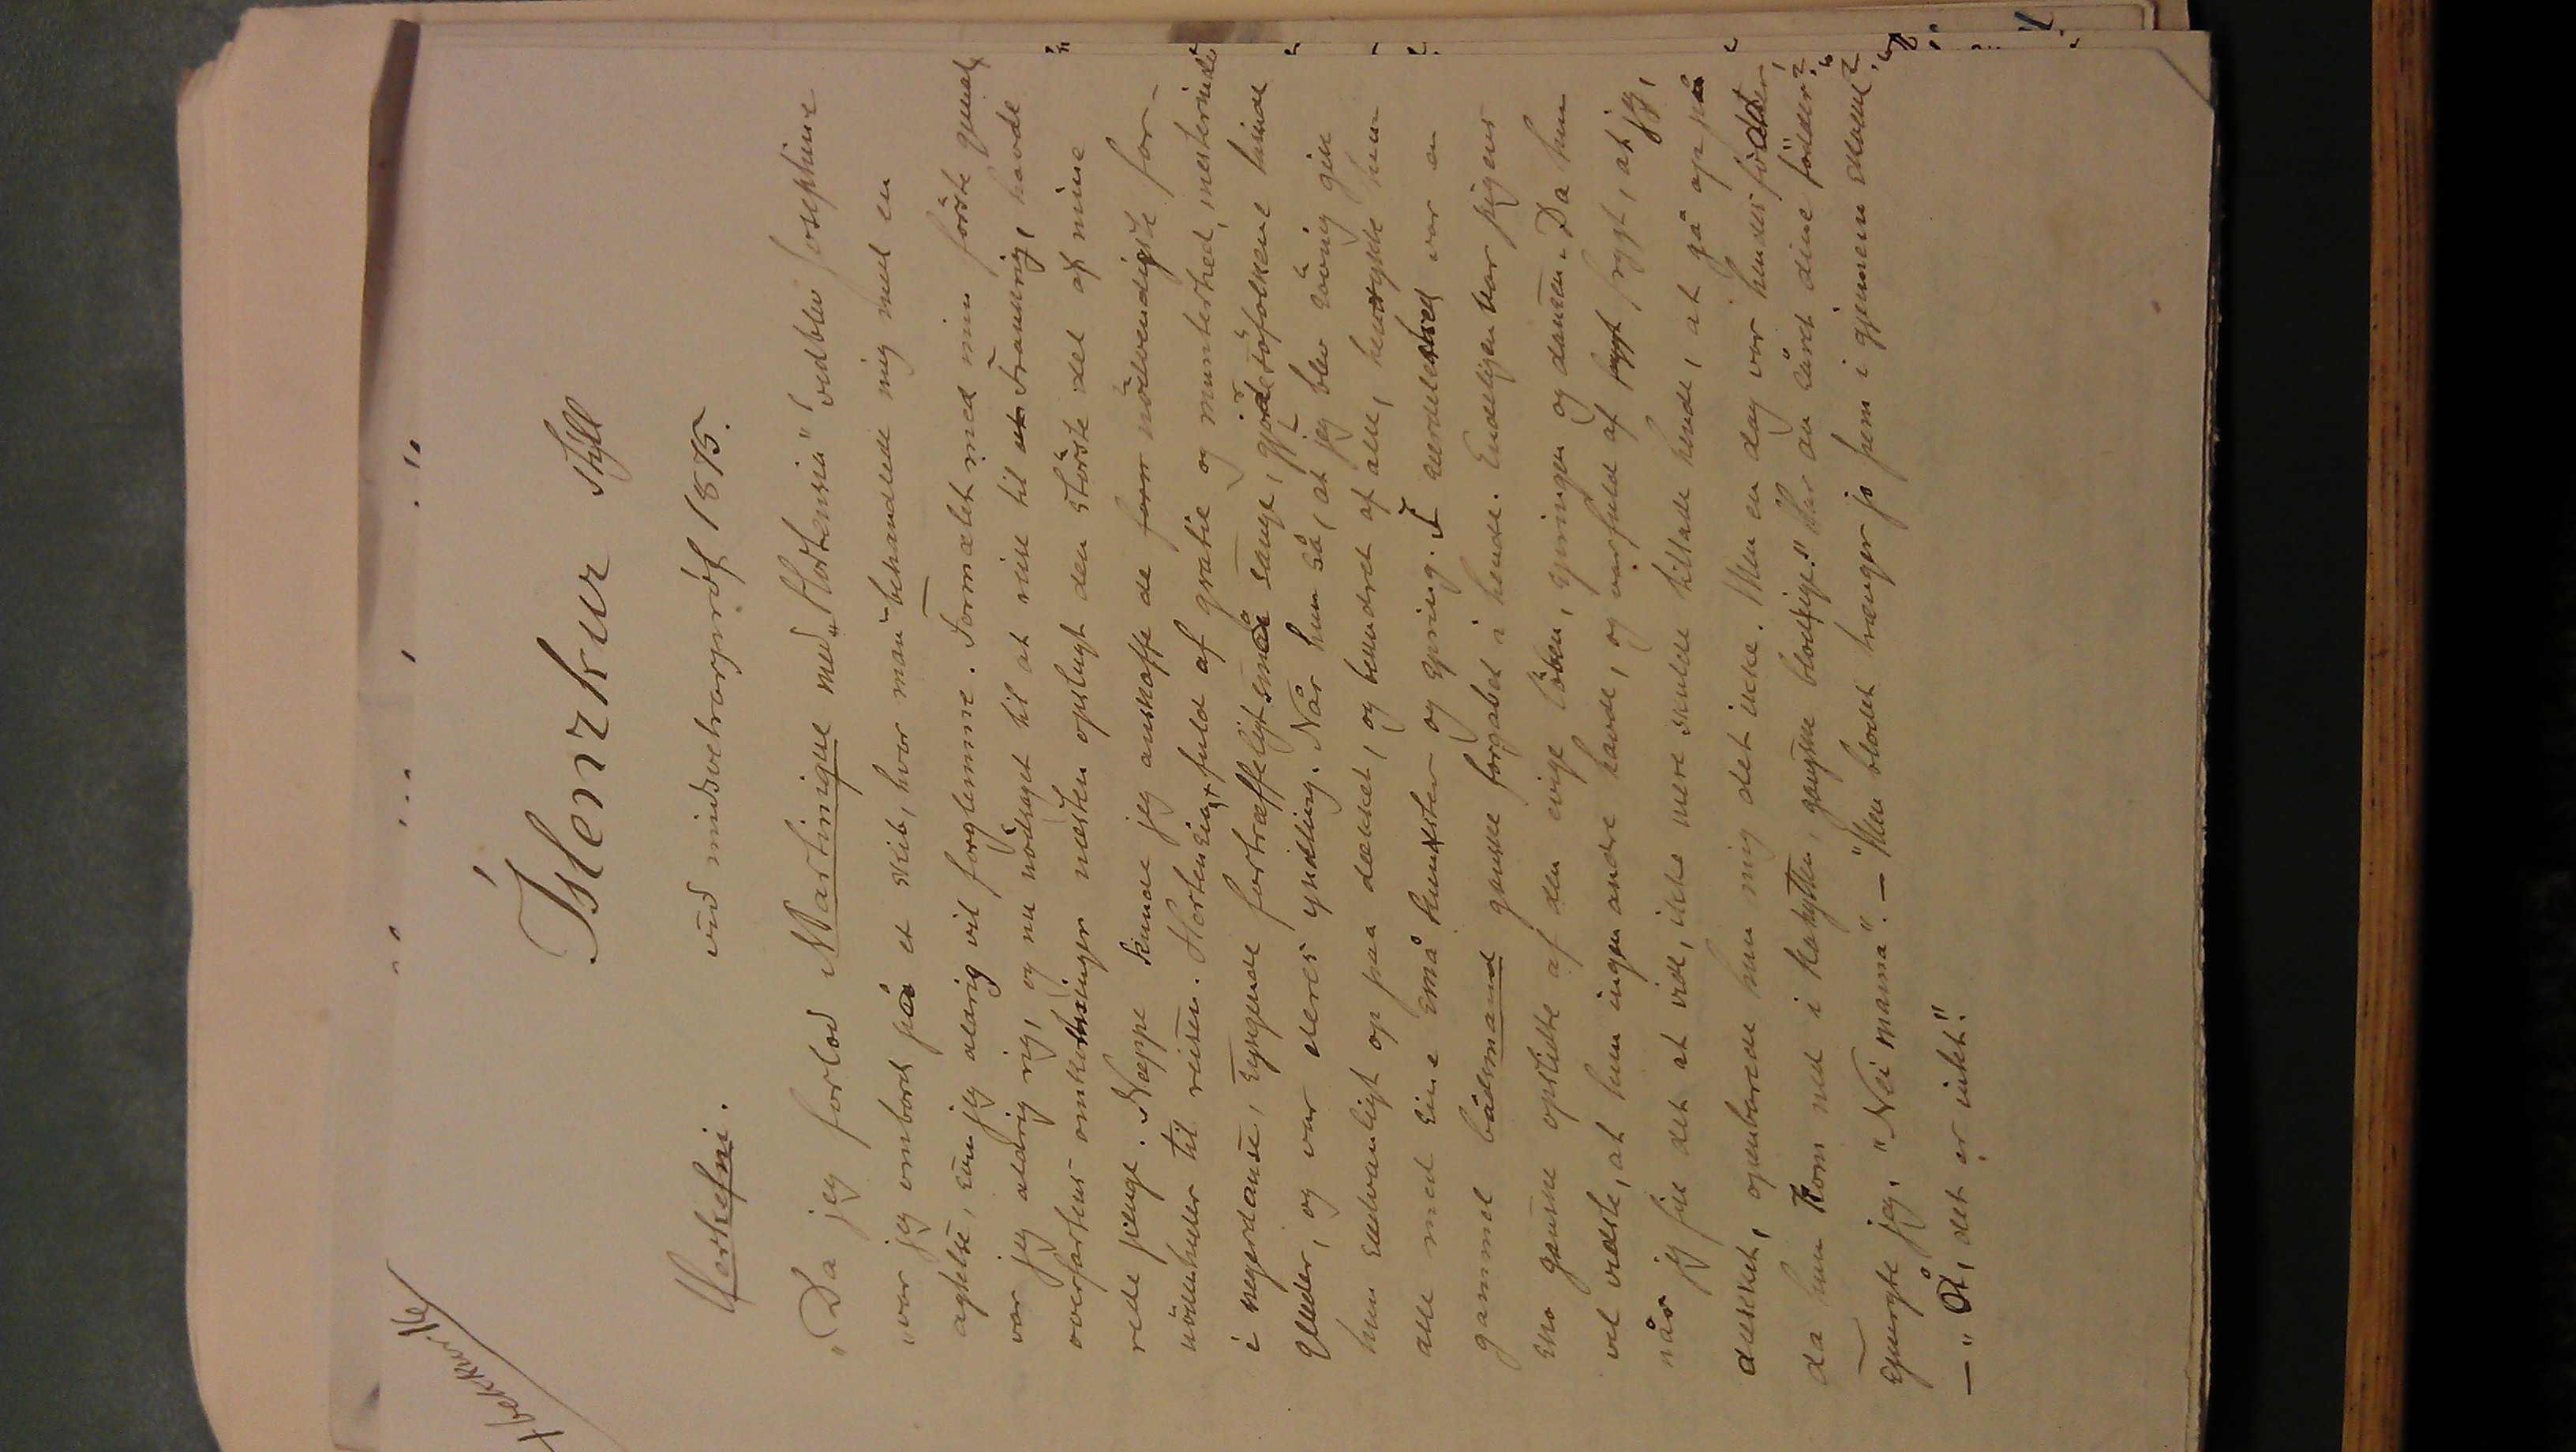 bekkur
Íslenzkur Stýll
við miðsvetraspróf 1875.
Verkefni.
"Da jeg forlod Martinique med "Hortensia", vedblev Josephine
"var jeg ombord på et skib, hvor man behandlede mig med en
agtelse, som jeg aldrig vil forglemme. Formælet med min förste gemal
var jeg aldrig rig, og nu nödsaget til at reise til Frankrig, havde
overfartens omkostninger næsten opslugt den störste del af mine
rede penge. Neppe kunde jeg anskaffe de nödvendigste for-
nödenheder til reisen. Hortensia, fuld af gratie og munterhed, mesterinde
i negerdanse, syngende fortræffeligt små sange, gjorde söfolkene hine
Glæder, og var deres yndling. Når hun så, at jeg blev sövnig gik
hun sædvanligt op paa dækket, og beundret af alle, hentykte hun
alle med sine små kunster og spring. I særdeleshed var en
gammel bådsmand ganske forgabet i hende. Endeligen var pigens
sko ganske opslidte af den evige löben, springen og dansen. Da hun
vel vidste, at hun ingen andre havde, og var fuld af frygt, at jeg,
når jeg fik det at vide, ikke mere skulde tillade hende, at gå op på
dækket, openbarede hun mig det ikke. Men en dag var hendes födder,
da hun kom ned i kahytten, ganske blodige." Har du såret dine födder?"
spurgte jeg. "Nei mama". — "Men blodet trænger jo frem i gjennem skoene?"
— "Å, det er intet."